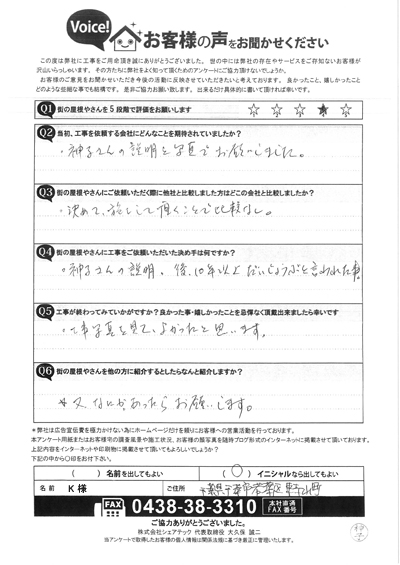 Voice! お客様の声をお聞かせください
この度は弊社に工事をご用命頂き誠にありがとうございました。世の中には弊社の存在やサービスをご存知ないお客様が
沢山いらっしゃいます。その方たちに弊社をよく知って頂くためのアンケートにご協力頂けないでしょうか。
お客様のご意見をお聞かせいただき今後の活動に反映させていただきたいと考えております。良かったこと、嬉しかったこと
どのような些細な事でも結構です。是非ご協力お願い致します。出来るだけ具体的に書いて頂ければ幸いです。
Q1 街の屋根やさんを5段階で評価をお願いします ☆ ☆ ☆ ★ ☆
Q2 当初、工事を依頼する会社にどんなことを期待されていましたか?
・神子さんの説明と写真でお願いしました。
Q3 街の屋根やさんにご依頼いただく際に他社と比較しました方はどこの会社と比較しましたか?
・決めて、施工して頂くことで比較なし。
Q4 街の屋根やさんに工事をご依頼いただいた決め手は何ですか?
・神子さんの説明。後、10年以上だいじょうぶと言われた事
Q5 工事が終わってみていかがですか?良かった事・嬉しかったことを忌憚なく頂戴出来ましたら幸いです
・工事写真を見て、よかったと思います。
Q6 街の屋根やさんを他の方に紹介するとしたらなんと紹介しますか?
* 又、なにかあったらお願いします。
*弊社は広告宣伝費を極力かけない為にホームページだけを頼りにお客様への営業活動を行っております。
本アンケート用紙またはお客様宅の調査風景や施工状況、お客様の顔写真を随時ブログ形式のインターネットに掲載させて頂いております。
上記内容をインターネットや印刷物に掲載させて頂いてもよろしいでしょうか?
下記の中から〇印をお付下さい。
( ) 名前を出してもよい (〇) イニシャルなら出してもよい
名前 K様 ご住所 千葉県千葉市若葉区
FAX 0438-38-3310 本社直通 FAX番号
ご協力ありがとうございました。
株式会社シェアテック 代表取締役 大久保 誠二
当アンケートで取得したお客様の個人情報は関係法規に基づき厳正に管理いたします。